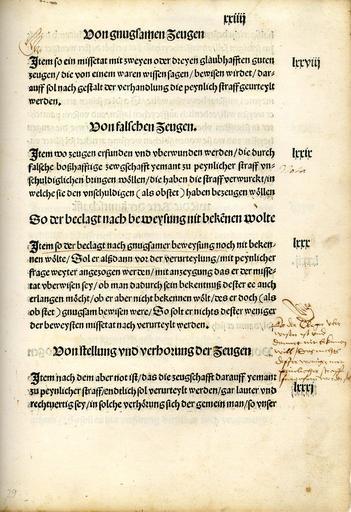 xxiiij
Von gnugsamen Zeugen
Item so ein missetat mit zweyen oder dreyen glaubhafften guten
zeugen / die von einem waren wissen sagen / bewisen wirdet / dar-
auff sol nach gestalt der verhandlung die peynlich straff geurteylt
werden.
lxxviij
Von falschen Zeugen.
Item wo zeugen erfunden vnd vberwunden werden / die durch
falsche boßhafftige zewgschafft yemant zu peynlicher straff vn-
schuldiglichen bringen wöllen / die haben die straff verwurckt / in
welche sie den vnschuldigen (als obstet) haben bezeugen wöllen
lxxix
So der beclagt nach beweysung nit bekēnen wolte
Item so der beclagt nach gnugsamer beweysung noch nit beken-
nen wölte / Sol er alßdann vor der verurteylung / mit peynlicher
frage weyter angezogen werden / mit anzeygung das er der misse-
tat vberwisen sey / ob man dadurch sein bekentnuß dester ee auch
erlangen möcht / ob er aber nicht bekennen wölt / des er doch (als
ob stet) gnugsam bewisen were / So solt er nichts dester weniger
der beweysten missetat nach verurteylt werden.
lxxx
Von stellung vnd verhorung der Zeugen
Item nach dem aber not ist / das die zeugschafft darauff yemant
zu peynlicher straff / endtlich sol verurteylt werden / gar lauter vnd
rechtuertig sey / in solche verhörung sich der gemein man / so vnser
lxxxj
29